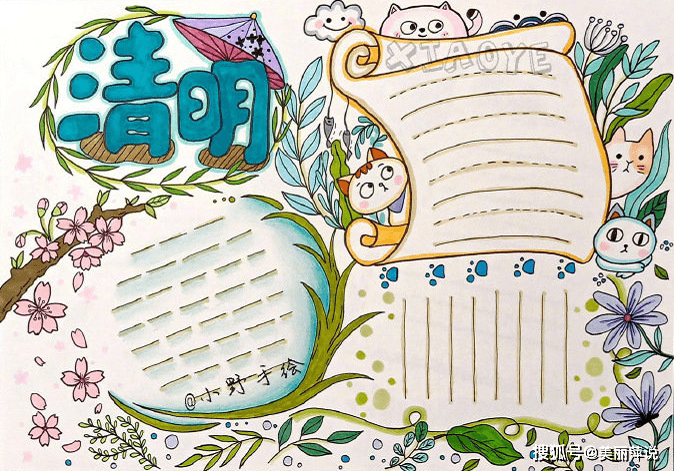 清明
XIAOYE
@小野手绘
搜狐号@美丽评说